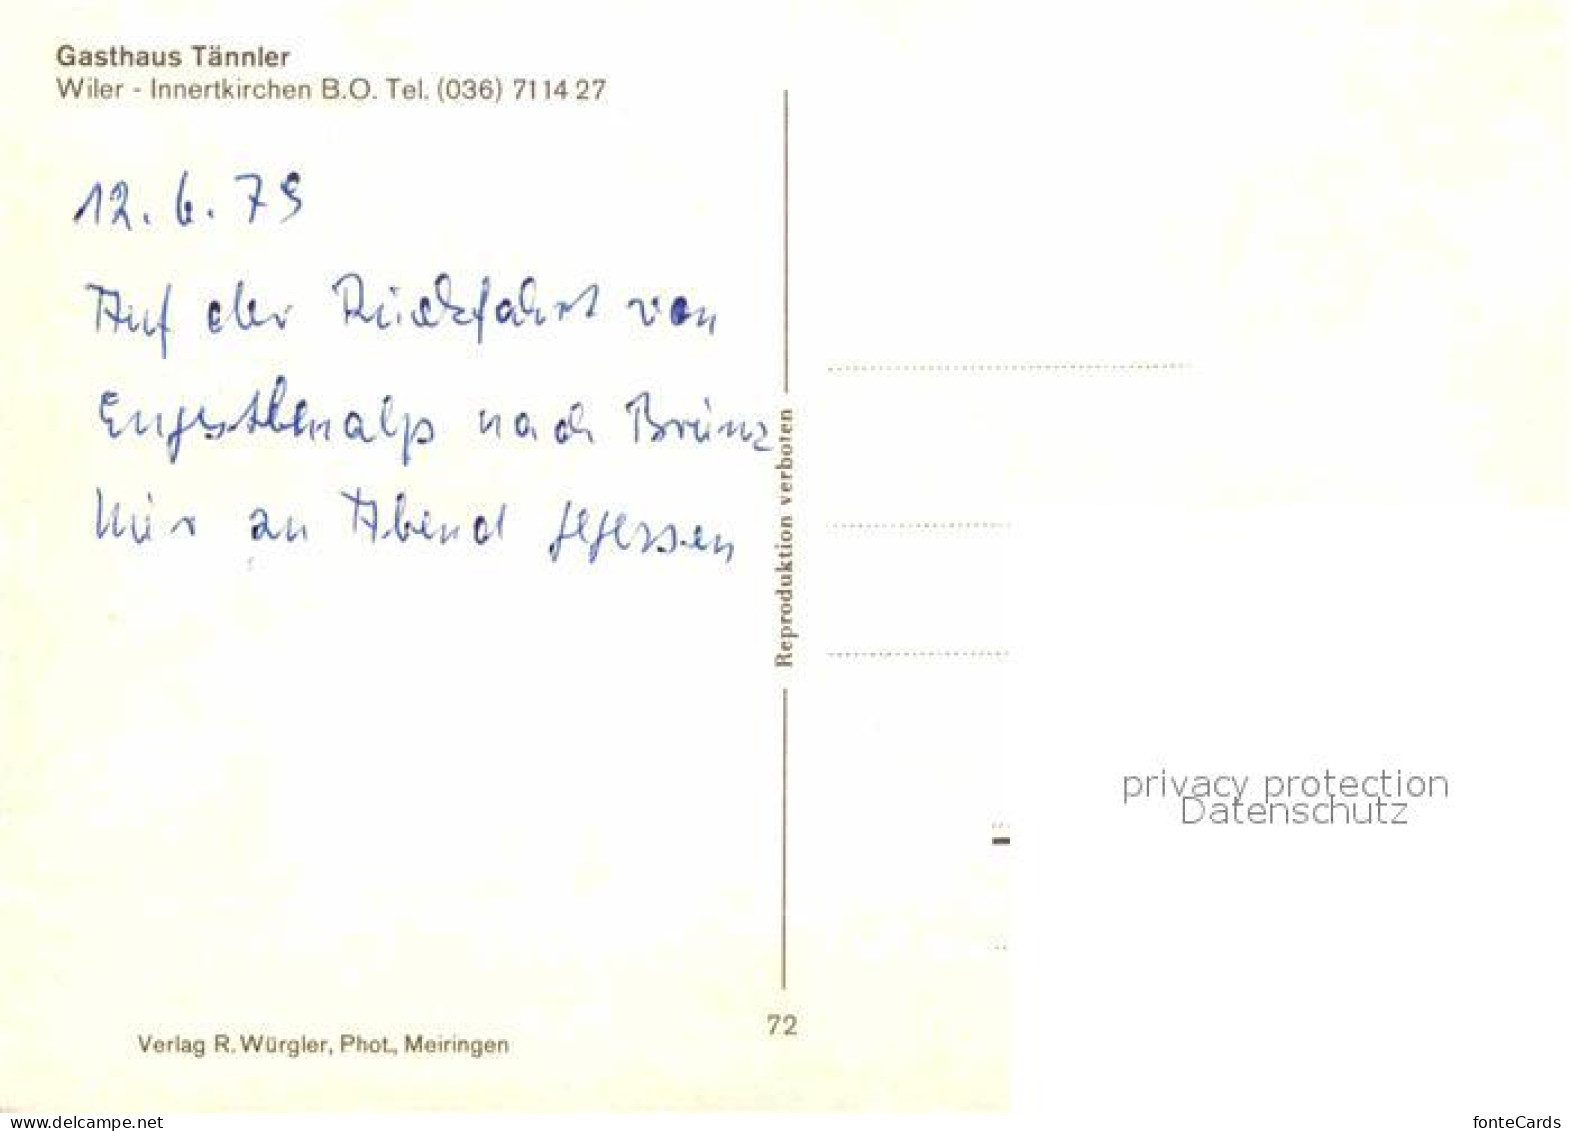 Gasthaus Tännler
Wiler - Innertkirchen B.O. Tel. (036) 71 14 27
12. 6. 79
Auf der Rückfahrt von
Engstlenalp nach Brünz
hier zu Abend gegessen
Reproduktion verboten
privacy protection
Datenschutz
72
Verlag R. Würgler, Phot., Meiringen
www.delcampe.net
fonteCards